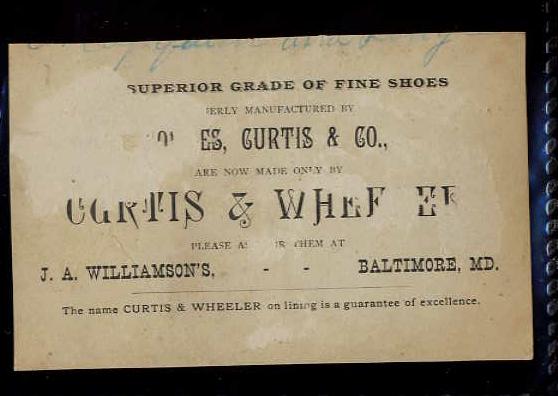 SUPERIOR GRADE OF FINE SHOES
MANUFACTURED BY
CURTIS & CO.,
ARE NOW MADE ONLY BY
CURTIS & WHEELER
PLEASE THEM AT
J. A. WILLIAMSON'S, - - BALTIMORE, MD.
The name CURTIS & WHEELER on lining is a guarantee of excellence.